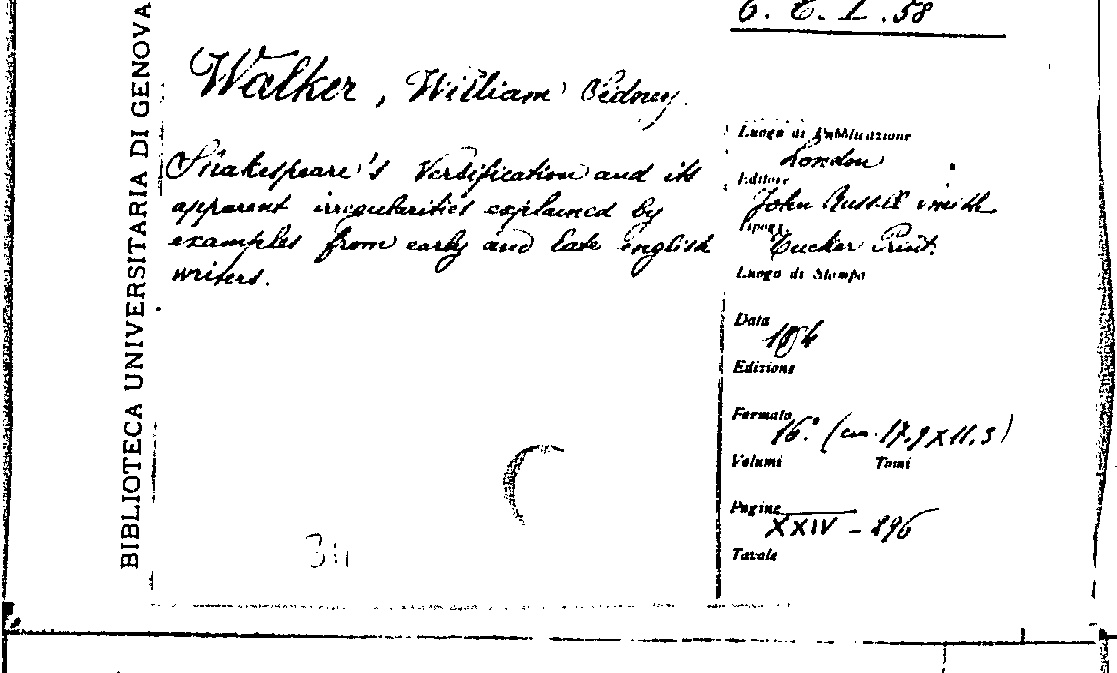 6. C. I. 58
BIBLIOTECA UNIVERSITARIA DI GENOVA
Walker, William Sidney
Shakespeare's Versification and its
apparent irregularities explained by
examples from early and late english
writers.
Luogo di Pubblicazione
London
Editore
John Russell smith
Tipogr.
Tucker Print.
Luogo di Stampa
Data
Edizione
Formato
16.° (cm. 17,9 X 11,5)
Volumi Tomi
Pagine
XXIV - 296
Tavole